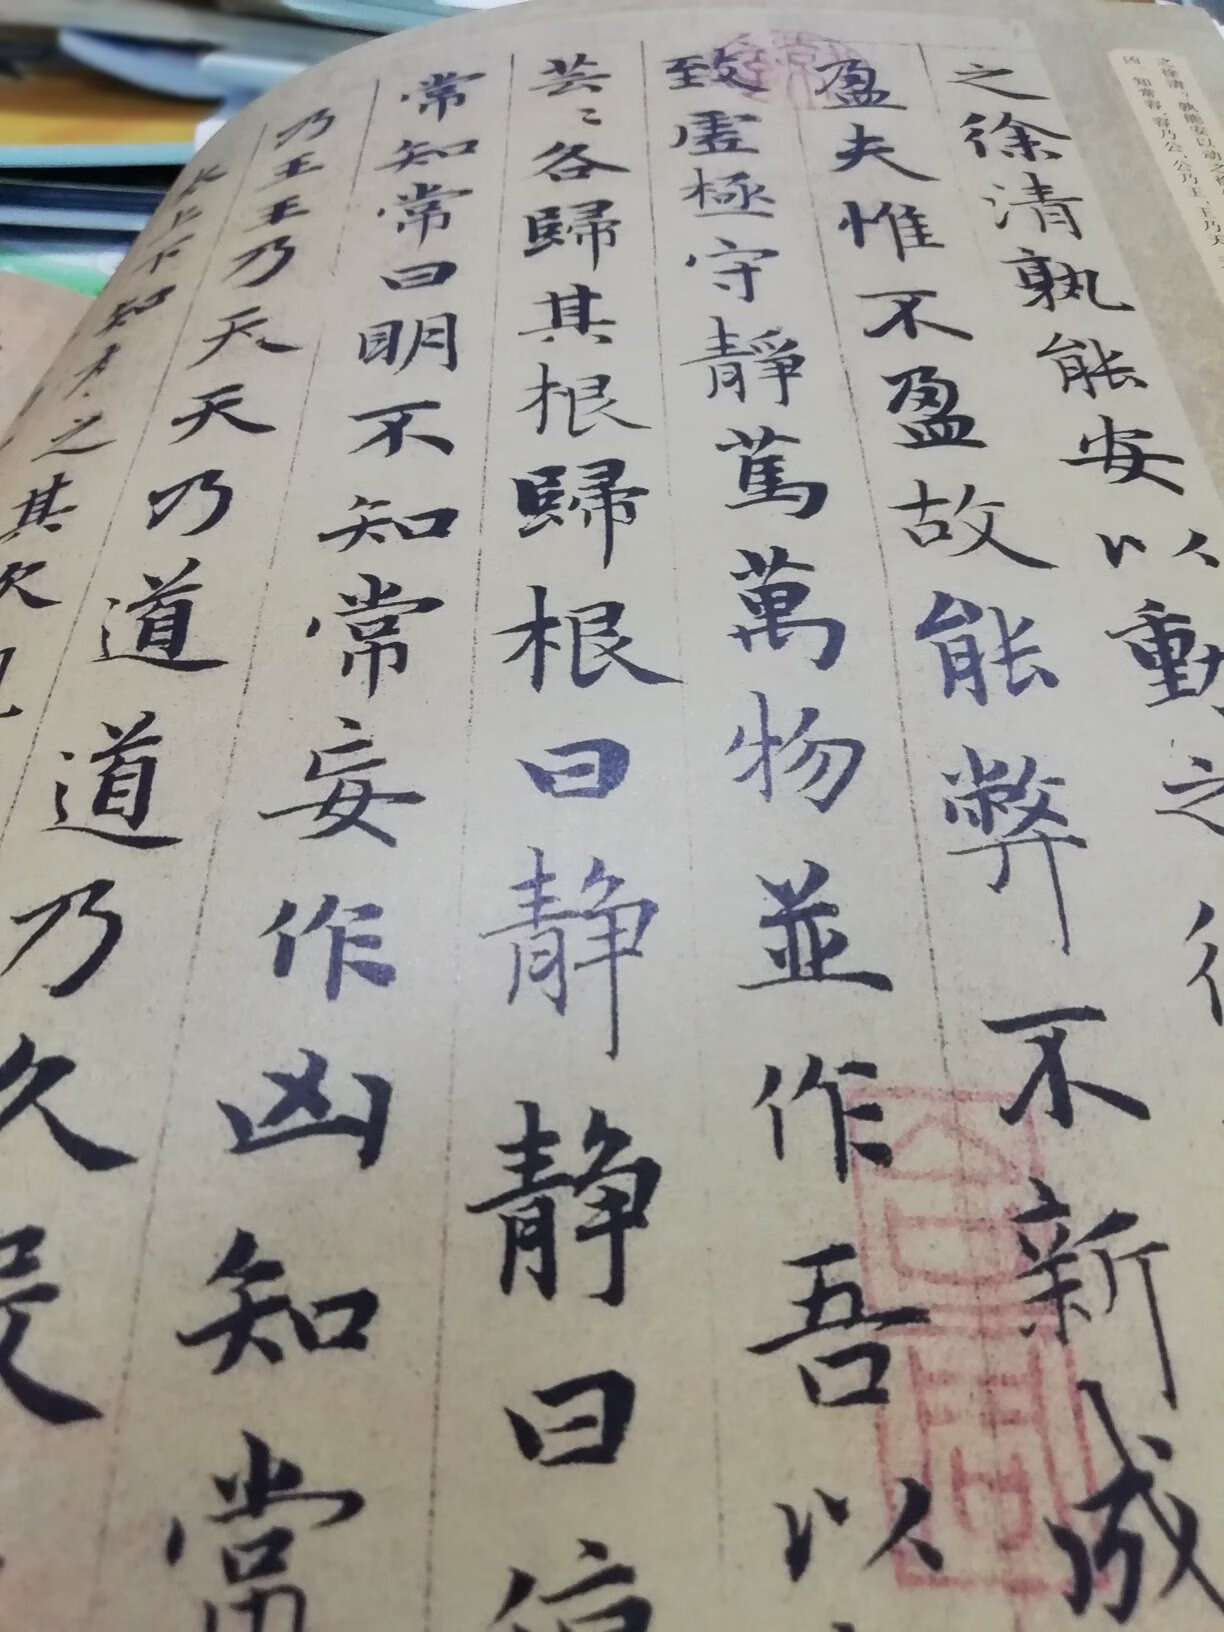 之徐清孰能安以動之
盈夫惟不盈故能弊不新成
致虛極守靜萬萬物並作吾以
芸〻各歸其根歸根曰静静曰
常知常曰明不知常妄作凶知常
乃王王乃天天乃道道乃久
太上下知有之其次
之徐清？孰能安以动之
凶。知常容，容乃公，公乃王，王乃天